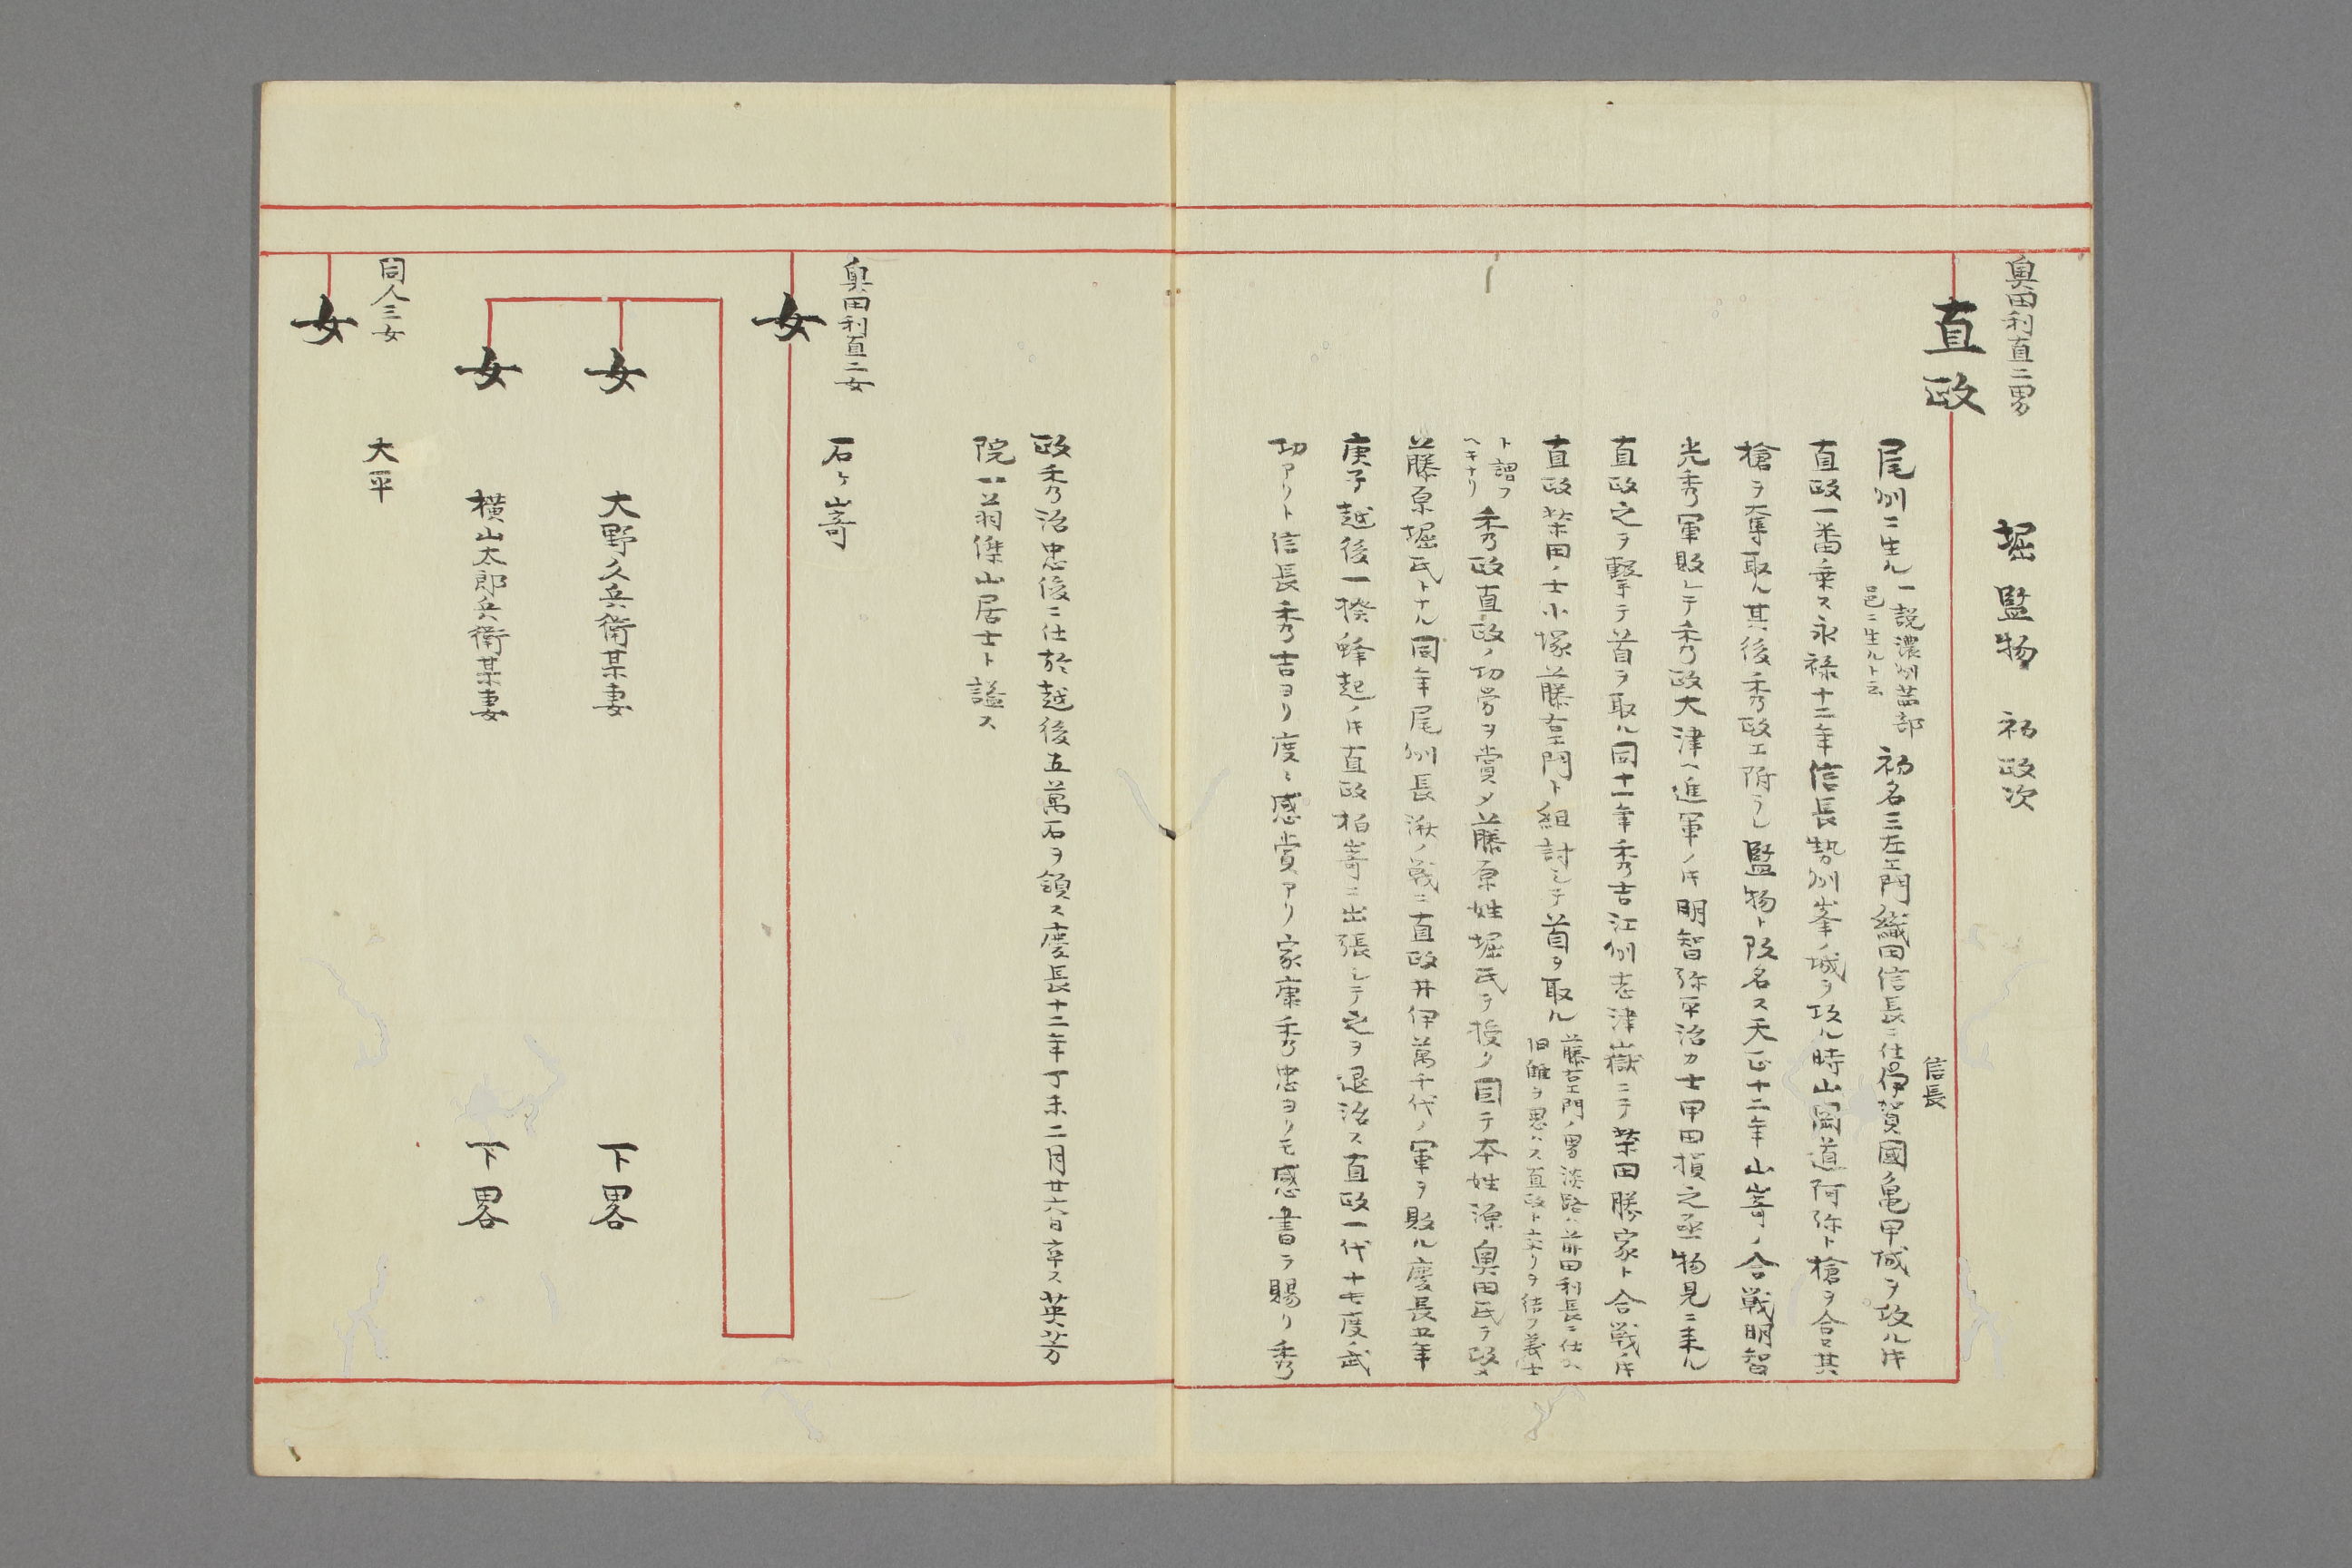 奥田利直二男
直政
堀監物　初政次
尾州ニ生ル一説濃州茜部邑ニ生ルト云初名三左エ門織田信長ニ仕信長伊賀國ノ亀甲城ヲ攻ル㐧
直政一番乗ス永禄十二年信長勢州峯ノ城ヲ攻ル時山岡道阿弥ト槍ヲ合セ其
槍ヲ奪取ル其後秀政エ附ラレ監物ト改名ス天正十二年山嵜ノ合戦明智
光秀軍敗レテ秀政大津ヘ進軍ノ㐧明智弥平治カ士甲田損之丞物見ニ来ル
直政之ヲ撃テ首ヲ取ル同十一年秀吉江州志津嶽ニテ柴田勝家ト合戦ノ㐧
直政柴田ノ士小塚藤左エ門ト組討シテ首ヲ取ル藤左エ門ノ男淡路ハ前田利長ニ仕ヘ旧讎ヲ思ハス直政ト交リヲ結フ義士
ト謂フヘキナリ秀政直政ノ功労ヲ賞メ藤原姓堀氏ヲ授ク因テ本姓源奥田氏ヲ改メ
藤原堀氏トナル同年尾州長湫ノ戦ニ直政井伊萬千代ノ軍ヲ敗ル慶長五年
庚子越後一揆蜂起ノ㐧直政柏嵜ニ出張シテ之ヲ退治ス直政一代十七度ノ武
功アリト信長秀吉ヨリ度〻感賞アリ家康秀忠ヨリモ感書ヲ賜リ秀
政秀治忠俊ニ仕於越後五萬石ヲ領ス慶長十二年丁未二月廿六日卒ス英芳
院一翁傑山居士ト謚ス
奥田利直二女
女
石ヶ嵜
女
大野久兵衛某妻
下畧
女
横山太郎兵衛某妻
下畧
同人三女
女
大平